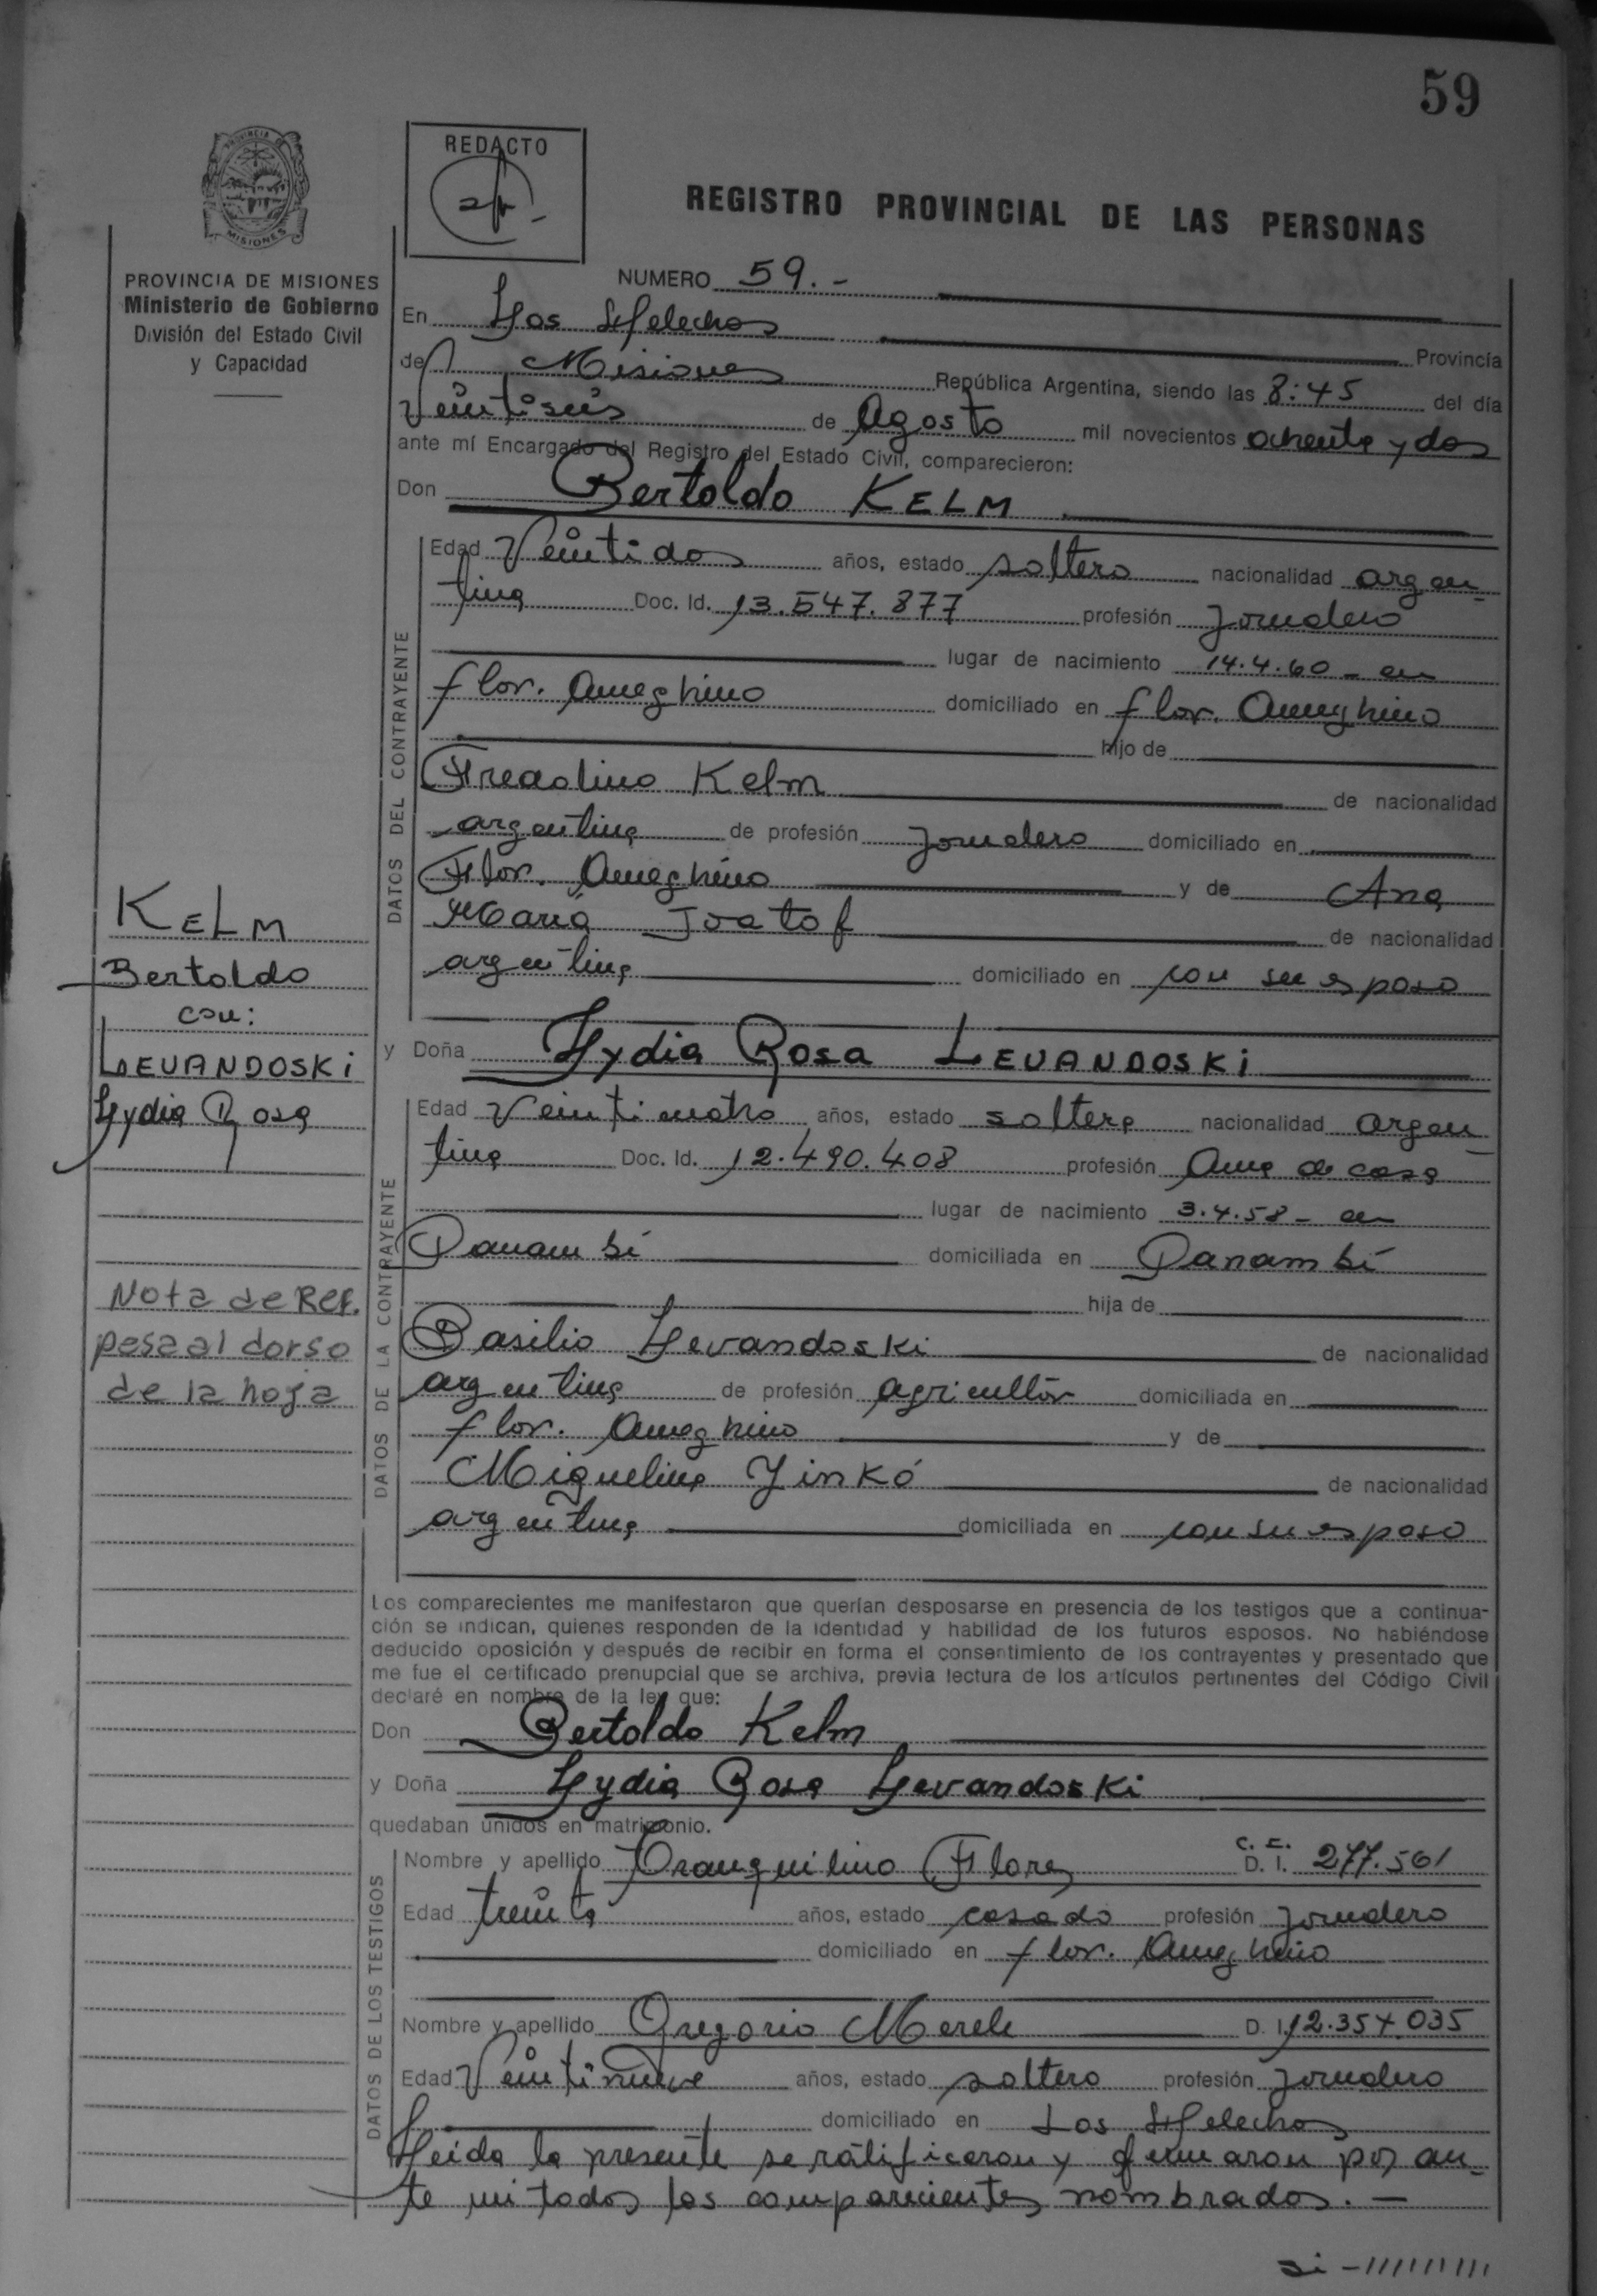 59
PROVINCIA DE
MISIONES
REDACTO
REGISTRO PROVINCIAL DE LAS PERSONAS
PROVINCIA DE MISIONES
Ministerio de Gobierno
División del Estado Civil
y Capacidad
NUMERO 59.-
En Los Helechos Provincia
de Misiones República Argentina, siendo las 8:45 del día
Veintiseis de Agosto mil novecientos ochenta y dos
ante mí Encargado del Registro del Estado Civil, comparecieron:
Don Bertoldo KELM
DATOS DEL CONTRAYENTE
Edad Veintidos años, estado soltero nacionalidad argen
tina Doc. Id. 13.547.877 profesión Jornalero
lugar de nacimiento 14.4.60 - en
flor. Ameghino domiciliado en flor. Ameghino
hijo de
Fredolino Kelm de nacionalidad
argentina de profesión Jornalero domiciliado en
Flor. Ameghino y de Ana
María de nacionalidad
argentina domiciliado en con su esposo
y Doña Lydia Rosa LEVANDOSKI
KELM
Bertoldo
con:
LEVANDOSKI
Lydia Rosa
Nota de Ref.
pasa al dorso
de la hoja
DATOS DE LA CONTRAYENTE
Edad Veinticuatro años, estado soltera nacionalidad argen
tina Doc. Id. 12.490.408 profesión Ama de casa
lugar de nacimiento 3.4.58 - en
Panambí domiciliada en Panambí
hija de
Basilio Levandoski de nacionalidad
argentina de profesión agricultor domiciliado en
flor. Ameghino y de
Miguelina Yinkó de nacionalidad
argentina domiciliada en con su esposo
Los comparecientes me manifestaron que querían desposarse en presencia de los testigos que a continua-
ción se indican, quienes responden de la identidad y habilidad de los futuros esposos. No habiéndose
deducido oposición y después de recibir en forma el consentimiento de los contrayentes y presentado que
me fue el certificado prenupcial que se archiva, previa lectura de los artículos pertinentes del Código Civil
declaré en nombre de la ley que:
Don Bertoldo Kelm
y Doña Lydia Rosa Levandoski
quedaban unidos en matrimonio.
DATOS DE LOS TESTIGOS
Nombre y apellido Tranquilino Flores C. I. D. I. 277.561
Edad treinta años, estado casado profesión Jornalero
domiciliado en flor. Ameghino
Nombre y apellido Gregorio Merele D. I. 12.354.035
Edad Veintinueve años, estado soltero profesión Jornalero
domiciliado en Los Helechos
Leida la presente se ratificaron y firmaron por an-
te mi todos los comparecientes nombrados. -
si -//////////